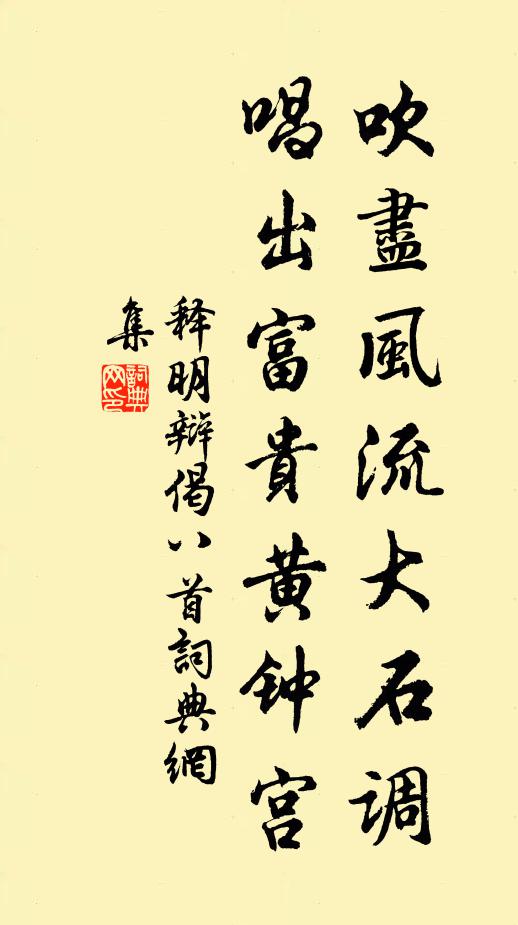 吹盡風流大石调
唱出富貴黄钟宫
释明辩偈八首詞典網
集
詞典网印